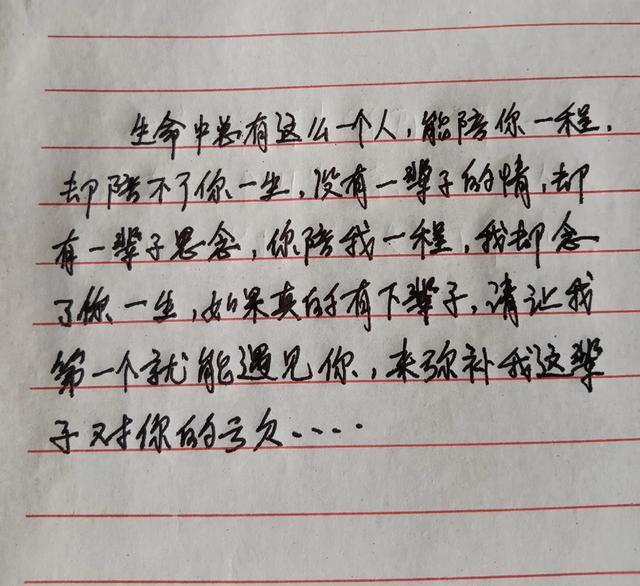 生命中总有这么一个人,能陪你一程,
却陪不了你一生,没有一辈子的情,却
有一辈子思念,你陪我一程,我却念
了你一生,如果真的有下辈子,请让我
第一个就能遇见你,来弥补我这辈
子对你的亏欠····